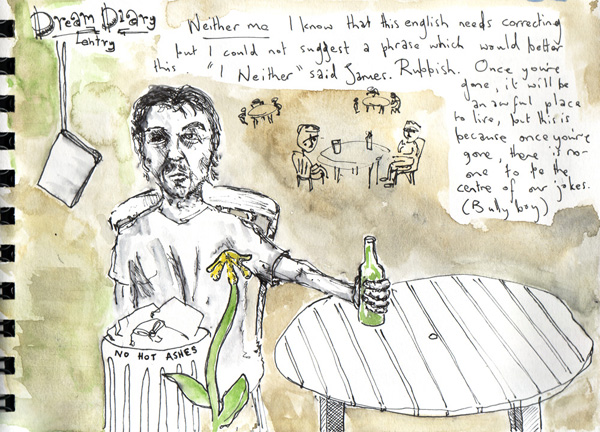 Dream Diary
Entry
Neither me I know that this english needs correcting
but I could not suggest a phrase which would better
this. "I Neither" said James. Rubbish. Once you're
gone, it will be
an awful place
to live, but this is
because once you're
gone, there is no-
one to be the
centre of our jokes.
(Bully boy)
NO HOT ASHES